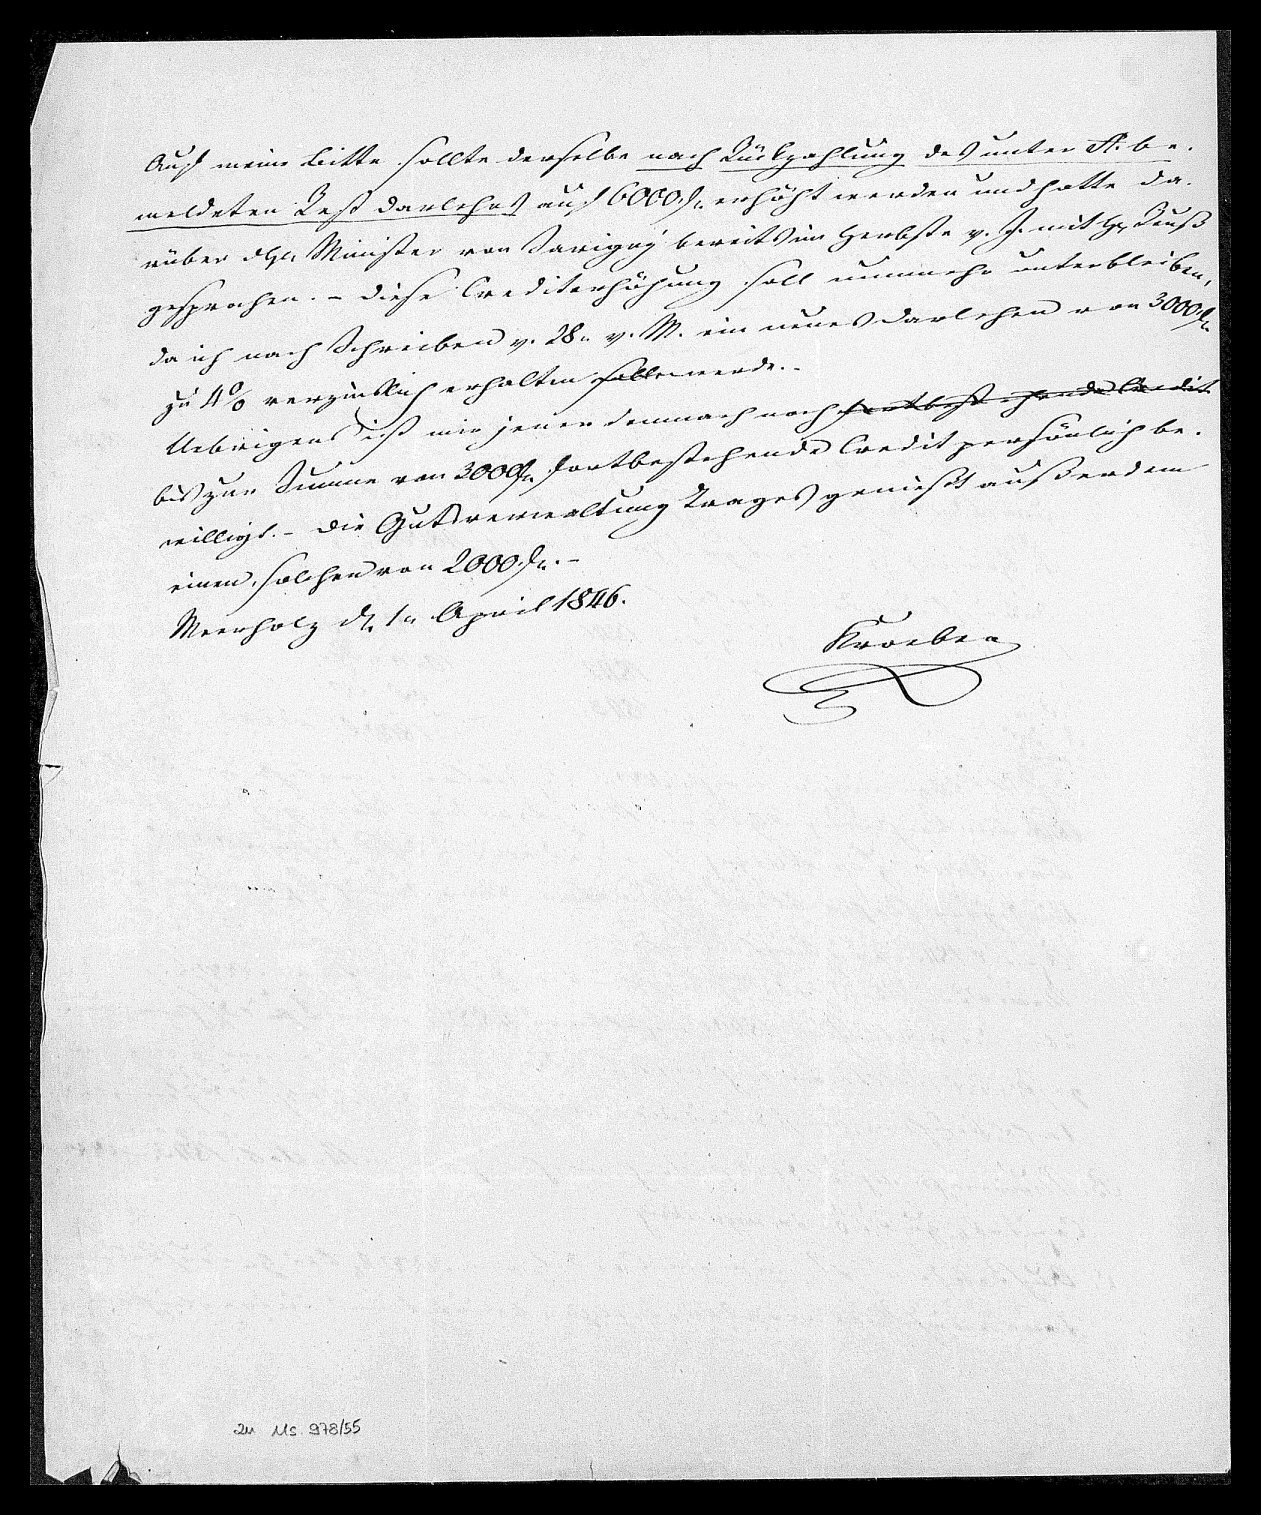 Auf meine Bitte sollte derselbe nach Rückzahlung des unter A. be-
meldeten Rest darlehns auf 6000 f. erhöht werden und hatte da-
rüber Minister von Savigny bereits im Herbste v. J. mit H. Reuß
gesprochen. – Diese Crediterhöhung soll nunmehr unterbleiben,
da ich nach Schreiben v. 28. v. M. ein neues Darlehen von 3000 f.
zu 4% verzinslich erhalten solle werde. –
Uebrigens ist mir jener demnach noch fortbestehende Credit
bis zur Summe von 3000 f. fortbestehende Credit persönlich be-
willigt. – Die Gutsverwaltung Trages genießt außerdem
einen solchen von 2000 f. –
Meerholz d. 1n April 1846.
Kroeber
zu Ms. 978/55